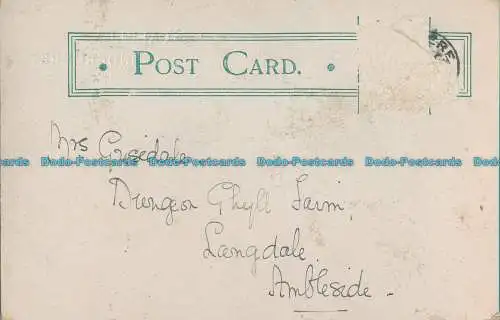 POST CARD.
ERE
Mrs Grisedale
Dodo-Postcards Dodo-Postcards Dodo-Postcards Dodo-Postcards Dodo-Postcards
Dungeon Ghyll Farm,
Langdale
Ambleside.